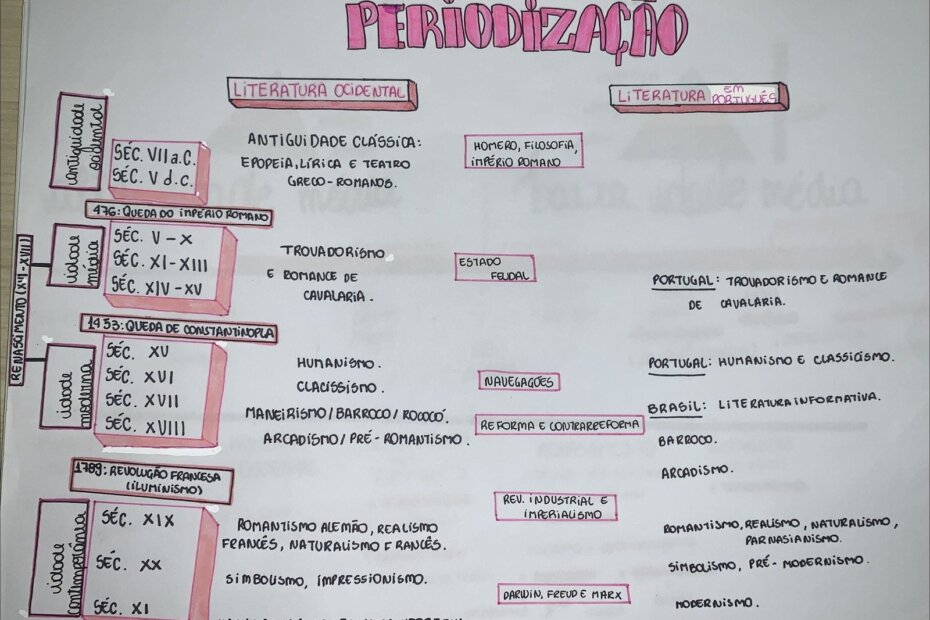 PERIODIZAÇÃO
LITERATURA OCIDENTAL
LITERATURA EM PORTUGUÊS
antiguidade ocidental
SÉC. VII a.C.
SÉC. V d.C.
ANTIGUIDADE CLÁSSICA:
EPOPEIA, LÍRICA E TEATRO
GRECO-ROMANOS.
HOMERO, FILOSOFIA,
IMPÉRIO ROMANO
476: QUEDA DO IMPÉRIO ROMANO
RENASCIMENTO (XVI-XVIII)
idade média
SÉC. V - X
SÉC. XI - XIII
SÉC. XIV - XV
TROVADORISMO
E ROMANCE DE
CAVALARIA.
ESTADO
FEUDAL
PORTUGAL: TROVADORISMO E ROMANCE
DE CAVALARIA.
1453: QUEDA DE CONSTANTINOPLA
idade moderna
SÉC. XV
SÉC. XVI
SÉC. XVII
SÉC. XVIII
HUMANISMO.
CLACÍSSISMO.
MANEIRISMO/BARROCO/ROCOCÓ.
ARCADISMO/PRÉ-ROMANTISMO.
NAVEGAÇÕES
REFORMA E CONTRARREFORMA
PORTUGAL: HUMANISMO E CLASSICISMO.
BRASIL: LITERATURA INFORMATIVA.
BARROCO.
ARCADISMO.
1789: REVOLUÇÃO FRANCESA
(ILUMINISMO)
idade contemporânea
SÉC. XIX
SÉC. XX
SÉC. XI
ROMANTISMO ALEMÃO, REALISMO
FRANCÊS, NATURALISMO FRANCÊS.
SIMBOLISMO, IMPRESSIONISMO.
REV. INDUSTRIAL E
IMPERIALISMO
DARWIN, FREUD E MARX
ROMANTISMO, REALISMO, NATURALISMO,
PARNASIANISMO.
SIMBOLISMO, PRÉ-MODERNISMO.
MODERNISMO.